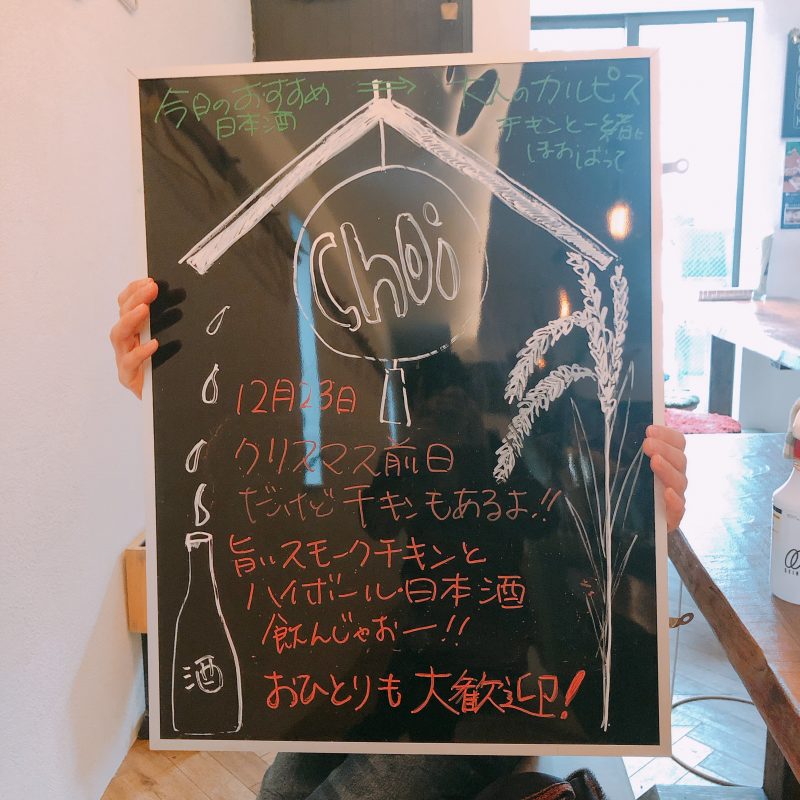 今日のおすすめ
日本酒
大人のカルピス
チキンと一緒に
ほおばって
Choi
12月23日
クリスマス前日
だけどチキンもあるよ!!
旨いスモークチキンと
ハイボール・日本酒
飲んじゃおー!!
おひとりも大歓迎!
酒